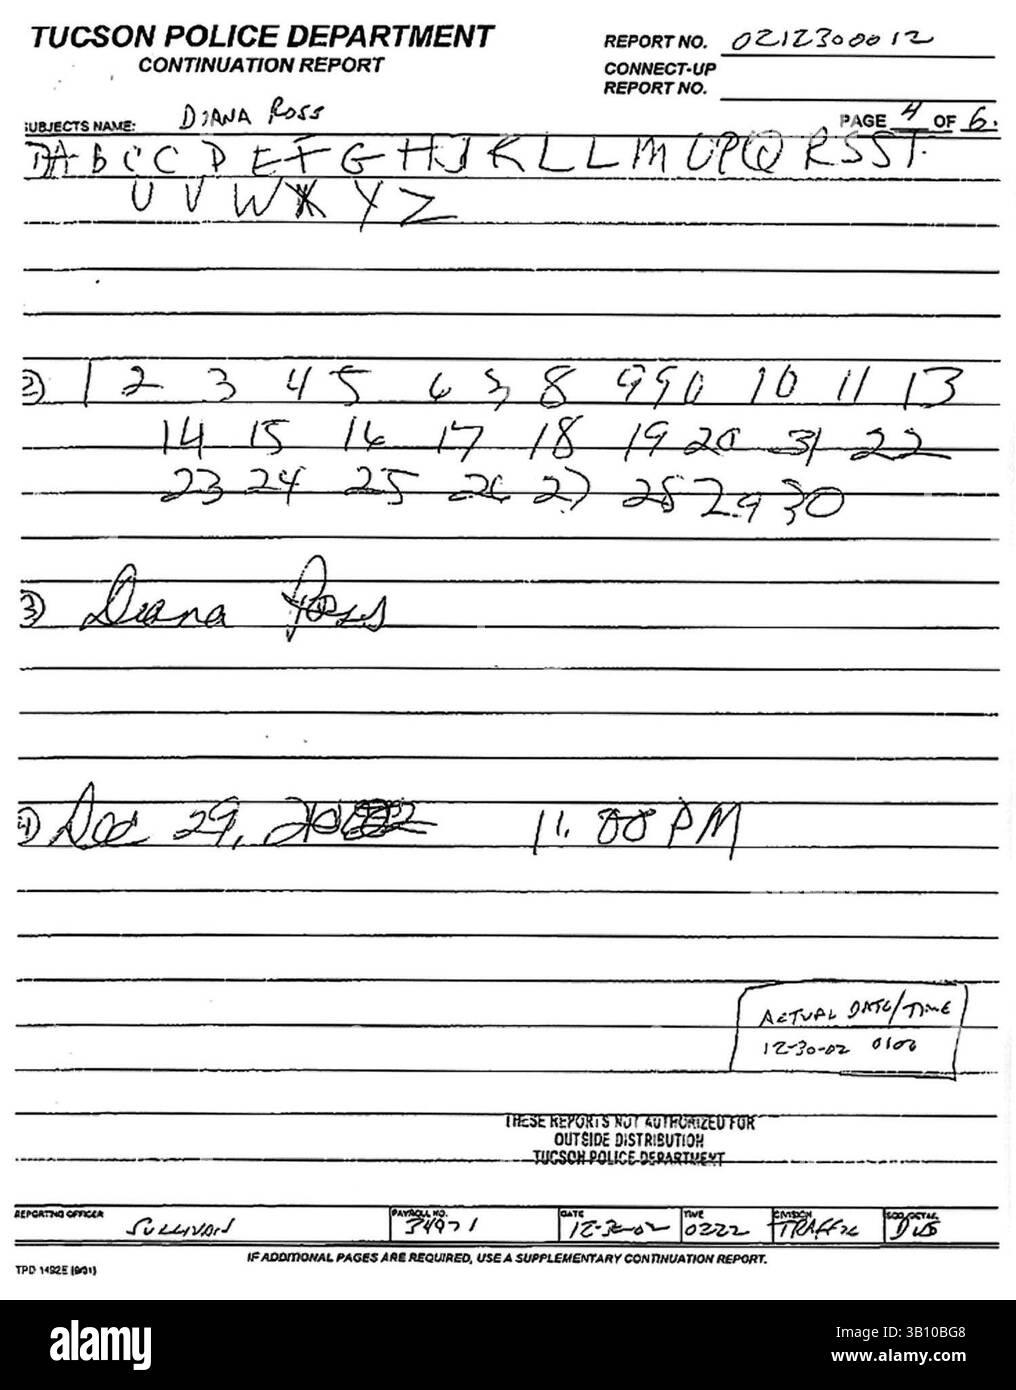 TUCSON POLICE DEPARTMENT
CONTINUATION REPORT
REPORT NO. 0212300012
CONNECT-UP
REPORT NO.
SUBJECTS NAME: DIANA ROSS
PAGE 4 OF 6.
A B C C D E F G H I J K L L M O P Q R S S T
U V W X Y Z
2) 1 2 3 4 5 6 7 8 9 9 0 10 11 13
14 15 16 17 18 19 20 31 22
23 24 25 26 27 28 29 30
3) Diana Ross
4) Dec 29, 11:00 PM
ACTUAL DATE/TIME
12-30-02 0100
THESE REPORTS NOT AUTHORIZED FOR
OUTSIDE DISTRIBUTION
TUCSON POLICE DEPARTMENT
REPORTING OFFICER SULLIVAN PAYROLL NO. 34971 DATE 12-30-02 TIME 0222 DIVISION TRAFFIC DUI
IF ADDITIONAL PAGES ARE REQUIRED, USE A SUPPLEMENTARY CONTINUATION REPORT.
TPD 1492E (9/91)
alamy
Image ID: 3B10BG8
www.alamy.com